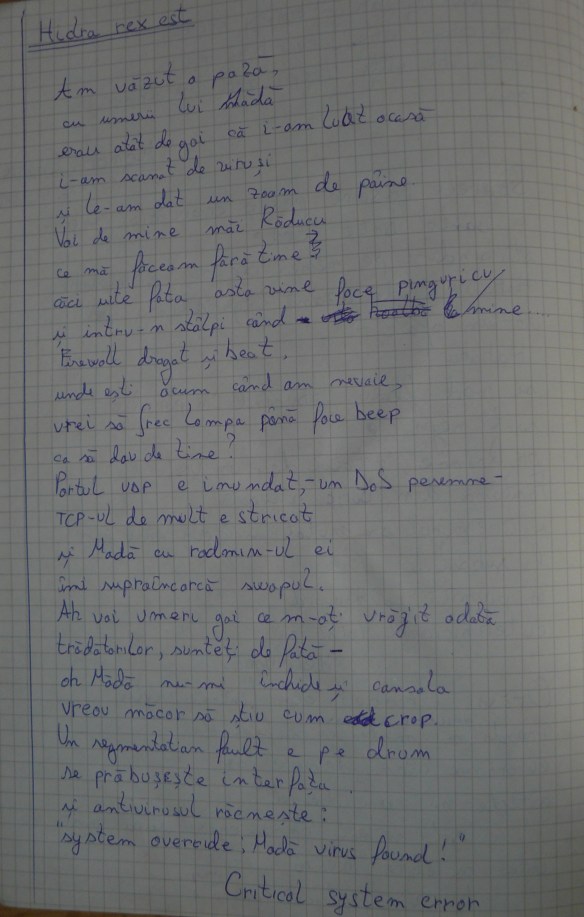 Hidra rex est
Am văzut o poză,
cu umerii lui Mădă
erau atât de goi că i-am luat acasă
i-am scanat de viruși
și le-am dat un zoom de pâine.
Vai de mine măi Răducu
ce mă făceam fără tine?
căci uite fata asta vine face pinguricu
și intru-n stâlpi când mine....
Firewall dragat și beat,
unde ești acum când am nevoie,
vrei să frec lampa până face beep
ca să dau de tine?
Portul UDP e inundat,-un DoS peremne-
TCP-ul de mult e stricat
și Madă cu radmin-ul ei
îmi supraîncarcă swapul.
Ah voi umeri goi ce m-ați vrăjit odată
trădătorilor, sunteți de fată -
oh Mădă nu-mi închide și consola
vreau măcar să știu cum crap.
Un segmentation fault e pe drum
se prăbușește interfața.
și antivirusul răcnește:
"system overide; Madă virus found!"
Critical system error